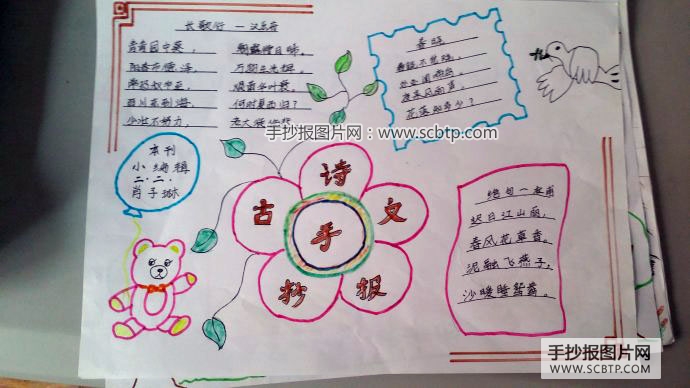 长歌行 一 汉乐府
青青园中葵， 朝露待日晞，
阳春布德泽， 万物生光辉，
常恐秋节至，
百川东到海， 何时复西归？
少壮不努力， 老大徒伤悲
春晓
春眠不觉晓，
处处闻啼鸟，
夜来风雨声，
花落知多少？
手抄报图片网：www.scbtp.com
本刊
小编辑
二.二.
肖子琳
古诗文
手
抄报
绝句一杜甫
迟日江山丽，
春风花草香。
泥融飞燕子，
沙暖睡鸳鸯。
手抄报图片网
SCBTP.COM